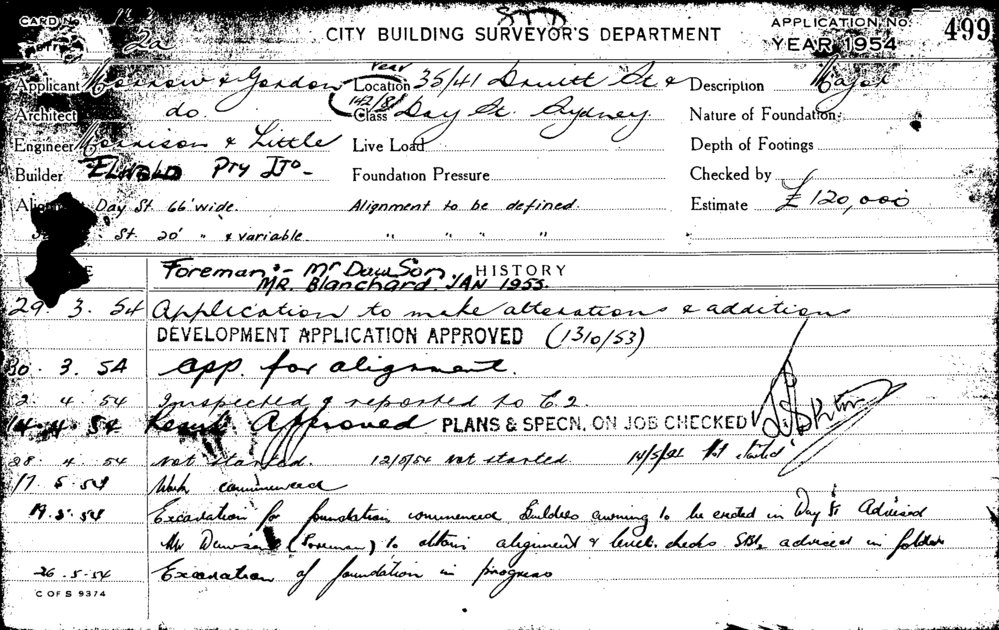 CARD No.
CITY BUILDING SURVEYOR'S DEPARTMENT
APPLICATION No. 499
YEAR 1954
2a
Applicant Morrow & Gordon Location 35/41 Druitt St & Description Major
Architect do. Class Day St. Sydney Nature of Foundation
Engineer Morrison & Little Live Load Depth of Footings
Builder Pty Ltd Foundation Pressure Checked by
Day St. 66' wide. Alignment to be defined. Estimate £120,000
St. 20' " & variable. " " " "
Foreman:- Mr Dawson. HISTORY
MR. Blanchard. JAN 1955.
29. 3. 54 Application to make alterations & additions
DEVELOPMENT APPLICATION APPROVED (1310/53)
30. 3. 54 app. for alignment.
2. 4. 54 Inspected & reported to E.2
14. 4. 54 Result Approved PLANS & SPECN. ON JOB CHECKED
28. 4. 54 Not started. 12/5/54 Not started. 14/5/54 Not started
17. 5. 54 Work commenced
19. 5. 54 Excavation for foundation commenced Builders awning to be erected in Day St Advised
Mr Dawson (Foreman) to obtain alignment & level checks advised in folder
26. 5. 54 Excavation of foundation in progress
C OF S 9374